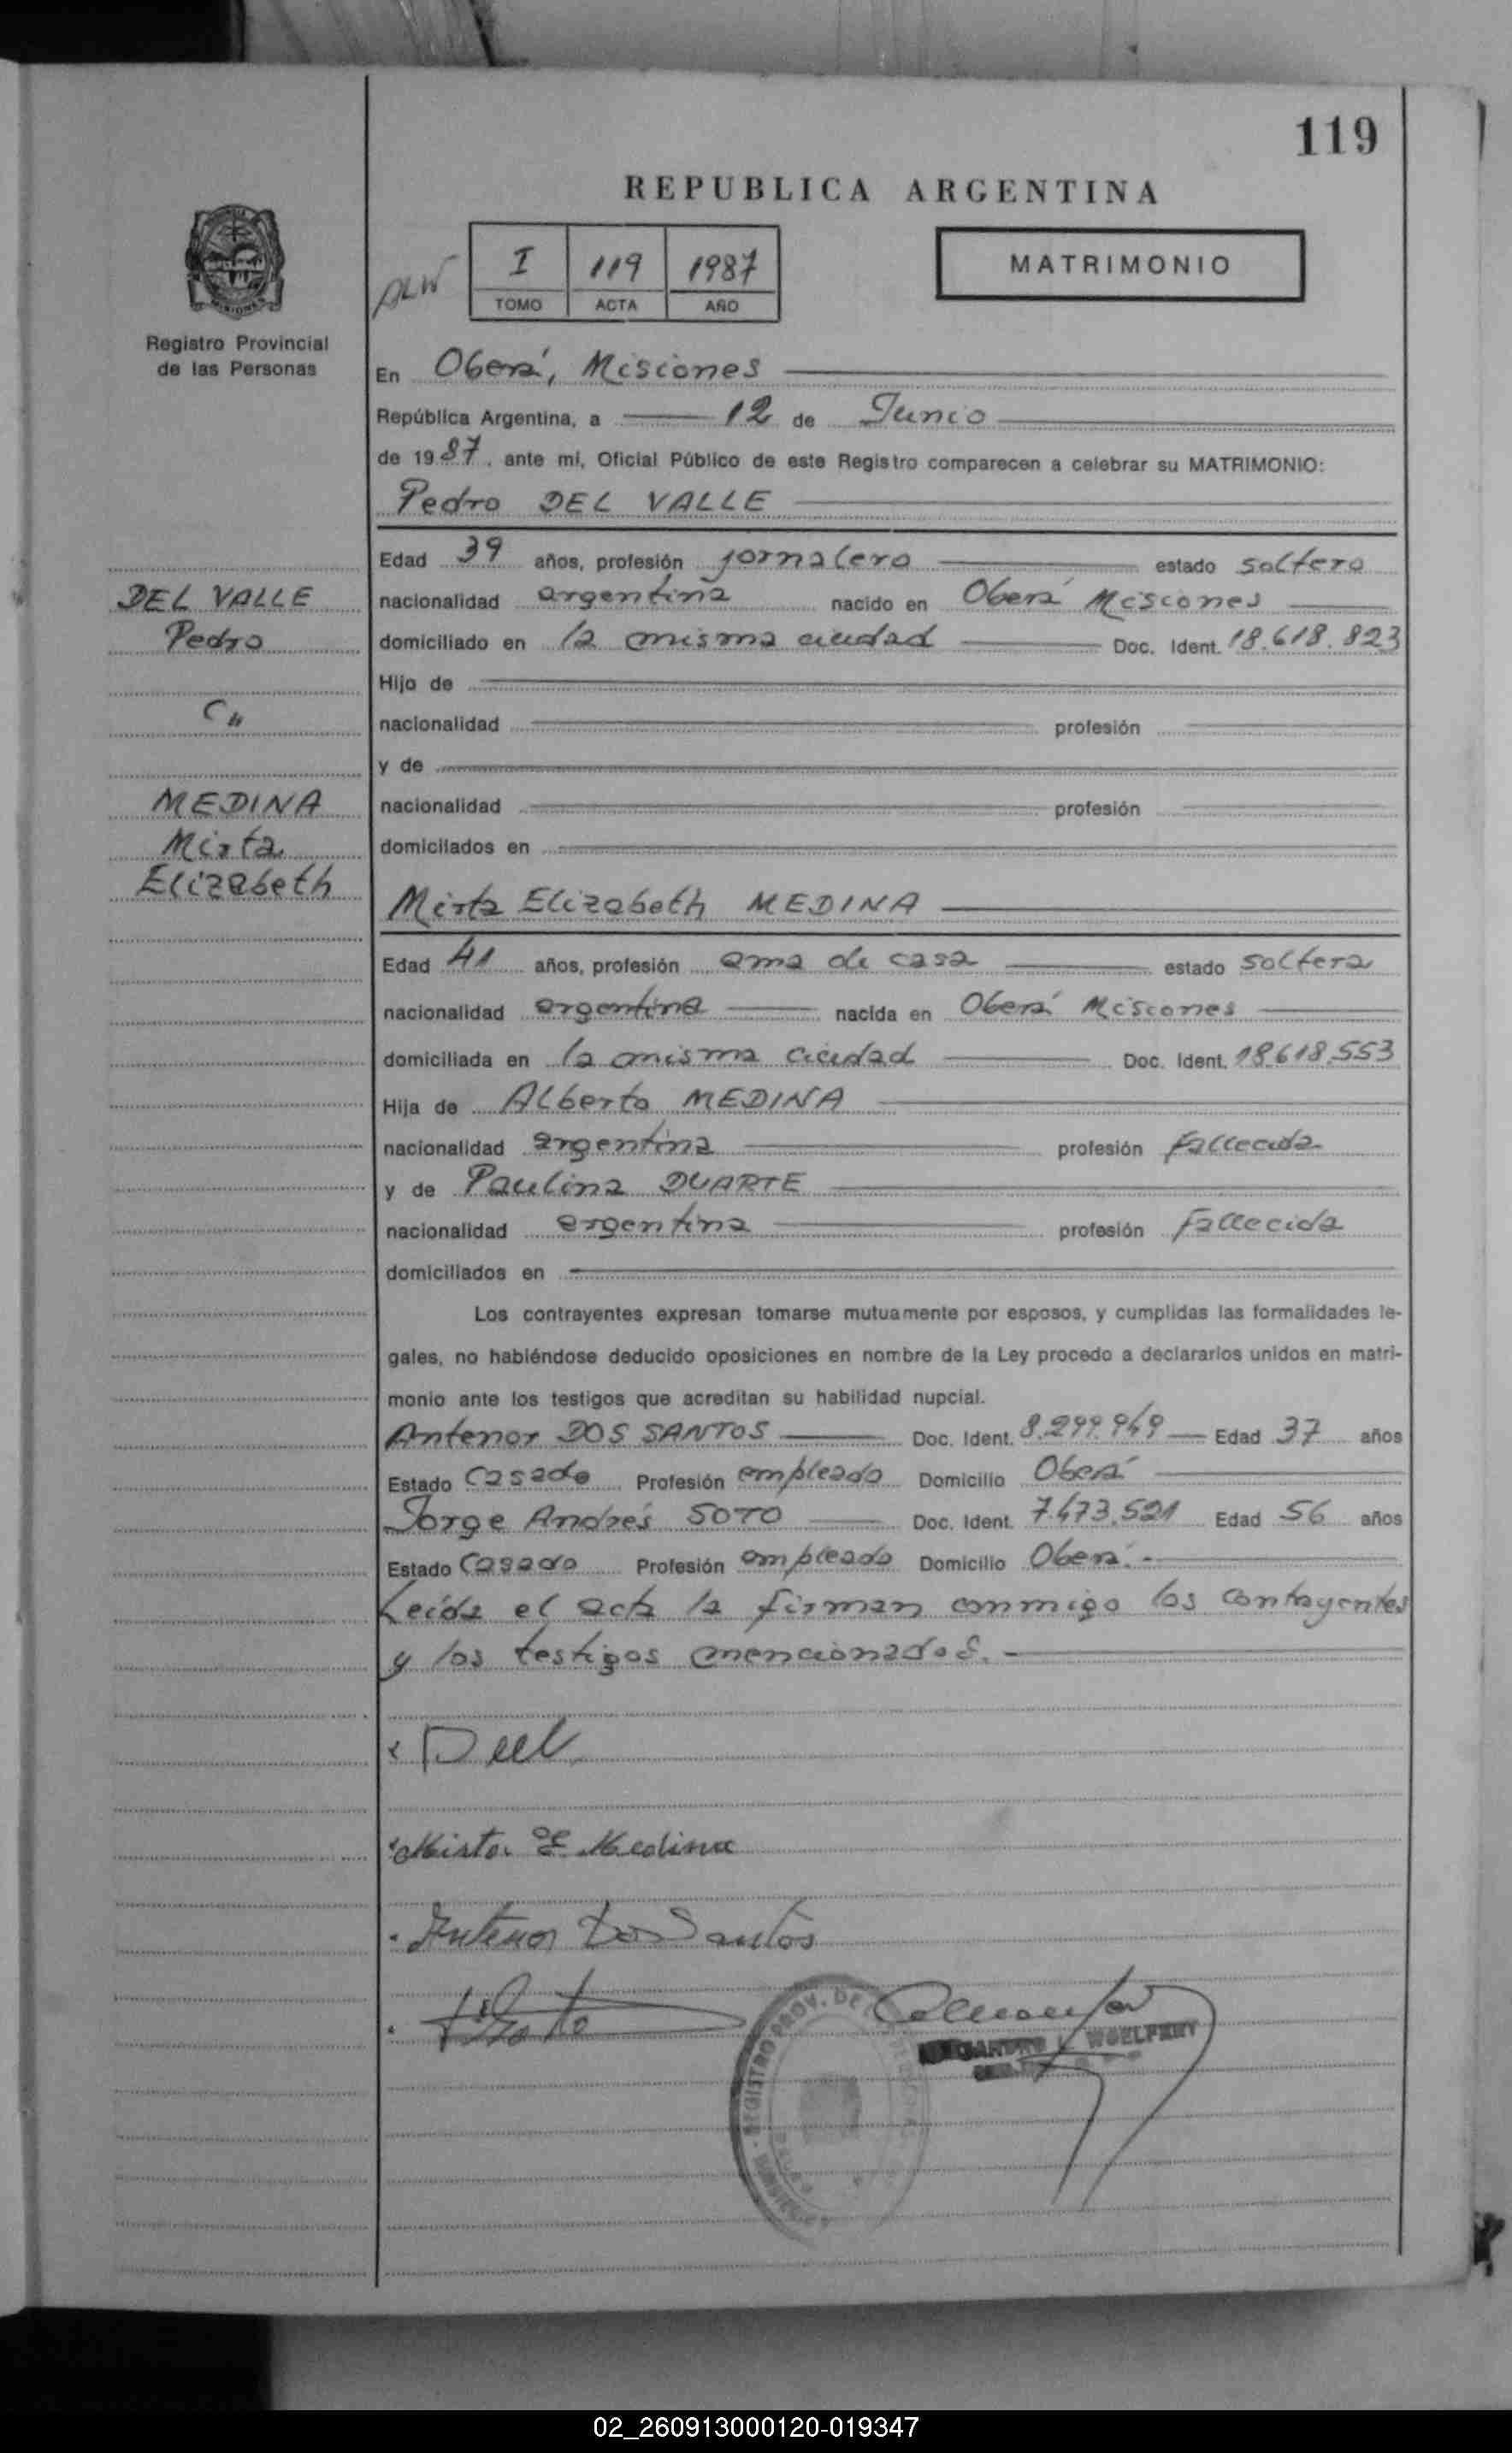 119
REPUBLICA ARGENTINA
I 119 1987
TOMO ACTA AÑO
MATRIMONIO
Registro Provincial
de las Personas
En Oberá, Misiones
República Argentina, a 12 de Junio
de 1987, ante mí, Oficial Público de este Registro comparecen a celebrar su MATRIMONIO:
Pedro DEL VALLE
Edad 39 años, profesión jornalero estado soltero
DEL VALLE
nacionalidad argentina nacido en Oberá Misiones
Pedro
domiciliado en la misma ciudad Doc. Ident. 18.618.823
Hijo de
nacionalidad profesión
y de
MEDINA
nacionalidad profesión
Mirta
domiciliados en
Elizabeth
Mirta Elizabeth MEDINA
Edad 41 años, profesión ama de casa estado soltera
nacionalidad argentina nacida en Oberá Misiones
domiciliada en la misma ciudad Doc. Ident. 18.618.553
Hija de Alberto MEDINA
nacionalidad argentina profesión fallecida
y de Paulina DUARTE
nacionalidad argentina profesión fallecida
domiciliados en
Los contrayentes expresan tomarse mutuamente por esposos, y cumplidas las formalidades le-
gales, no habiéndose deducido oposiciones en nombre de la Ley procedo a declararlos unidos en matri-
monio ante los testigos que acreditan su habilidad nupcial.
Antenor DOS SANTOS Doc. Ident. 8.299.949 Edad 37 años
Estado casado Profesión empleado Domicilio Oberá
Jorge Andrés SOTO Doc. Ident. 7.473.521 Edad 56 años
Estado casado Profesión empleado Domicilio Oberá.-
Leída el acta la firman conmigo los contayentes
y los testigos mencionados.-
Mirta E Medina
Antenor Dos Santos
REGISTRO PROV. DE
02_260913000120-019347